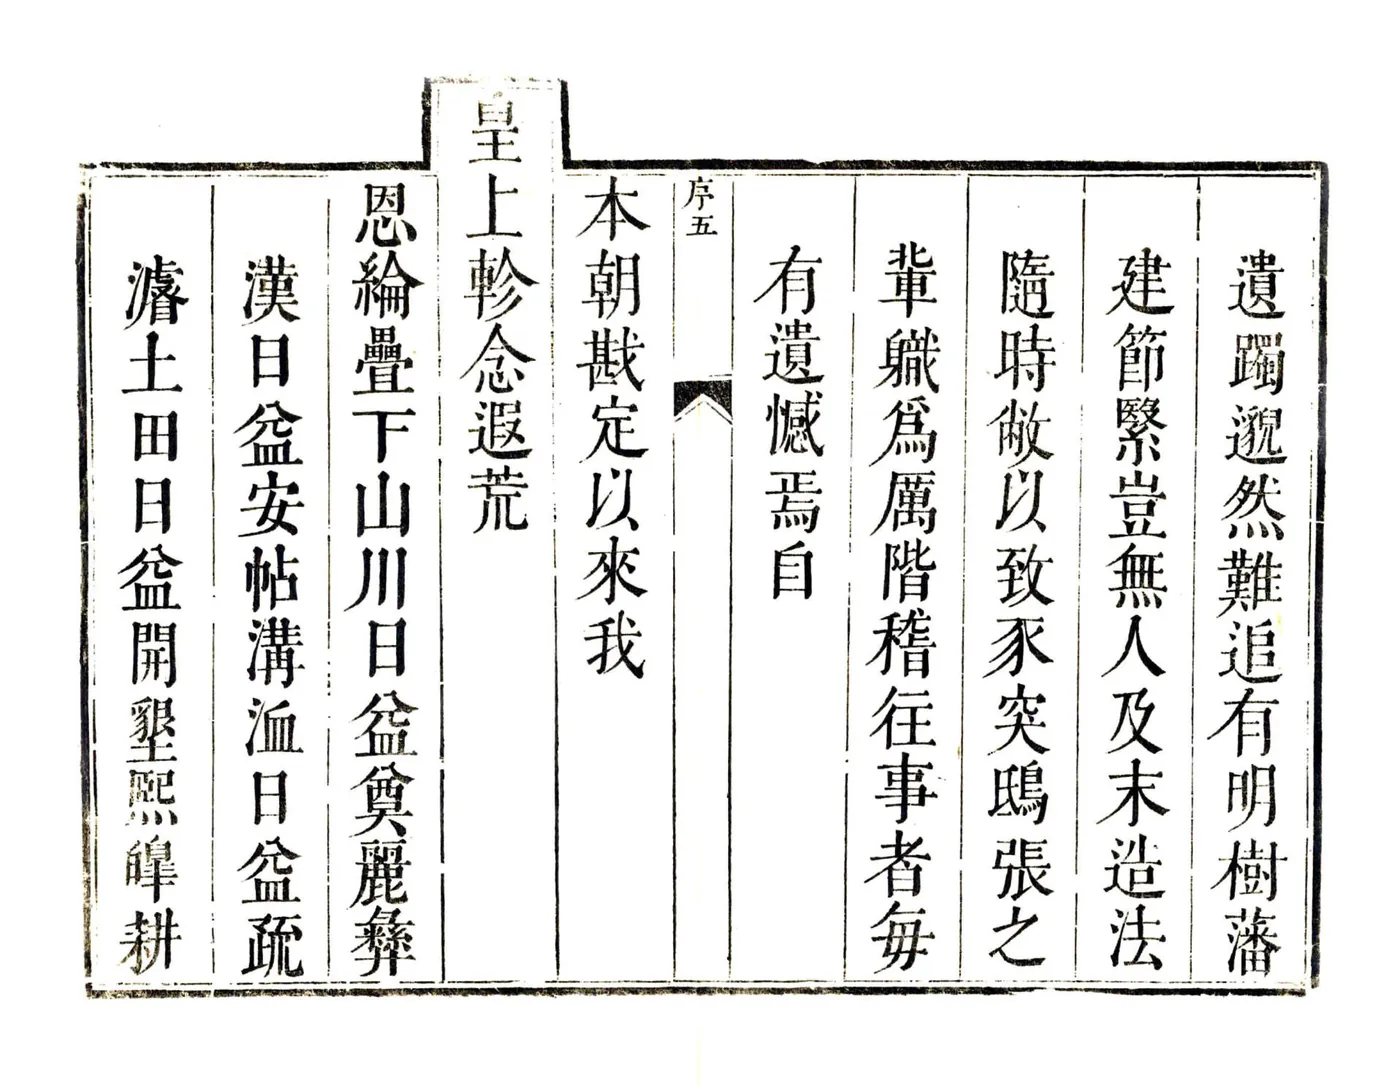 遺躅邈然難追有明樹藩
建節緊豈無人及末造法
隨時敝以致豕突鴟張之
輩職爲厲階稽往事者每
有遺憾焉自
序五
本朝戡定以來我
皇上軫念遐荒
恩綸疊下山川日益奠麗彝
漢日益安帖溝洫日益疏
濬土田日益開墾熙皥耕